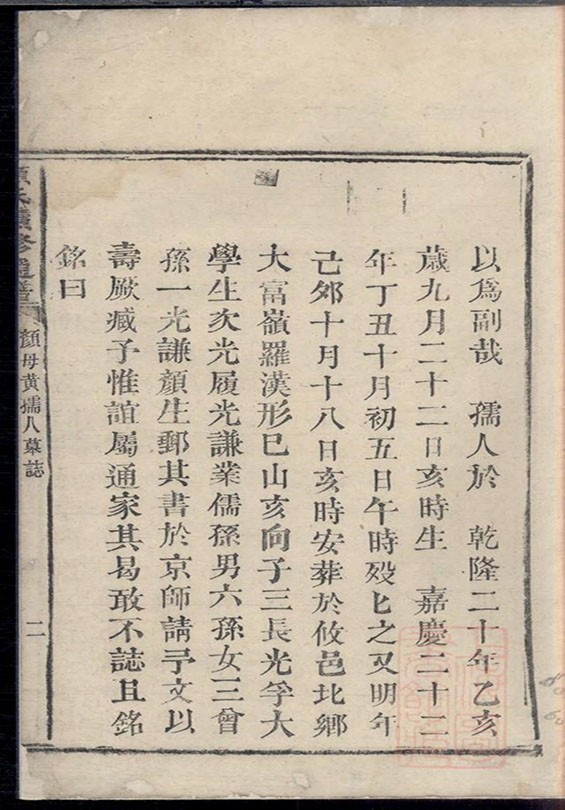 以爲副哉　孺人於　乾隆二十年乙亥
歲九月二十二日亥時生　嘉慶二十二
年丁丑十月初五日午時歿匕之又明年
己夘十月十八日亥時安葬於攸邑北鄉
大富嶺羅漢形巳山亥向子三長光孚大
學生次光履光謙業儒孫男六孫女三曾
孫一光謙顏生郵其書於京師請予文以
壽厥臧予惟誼屬通家其曷敢不誌且銘
銘曰
氏續修通譜
顏母黃孺人墓誌
二